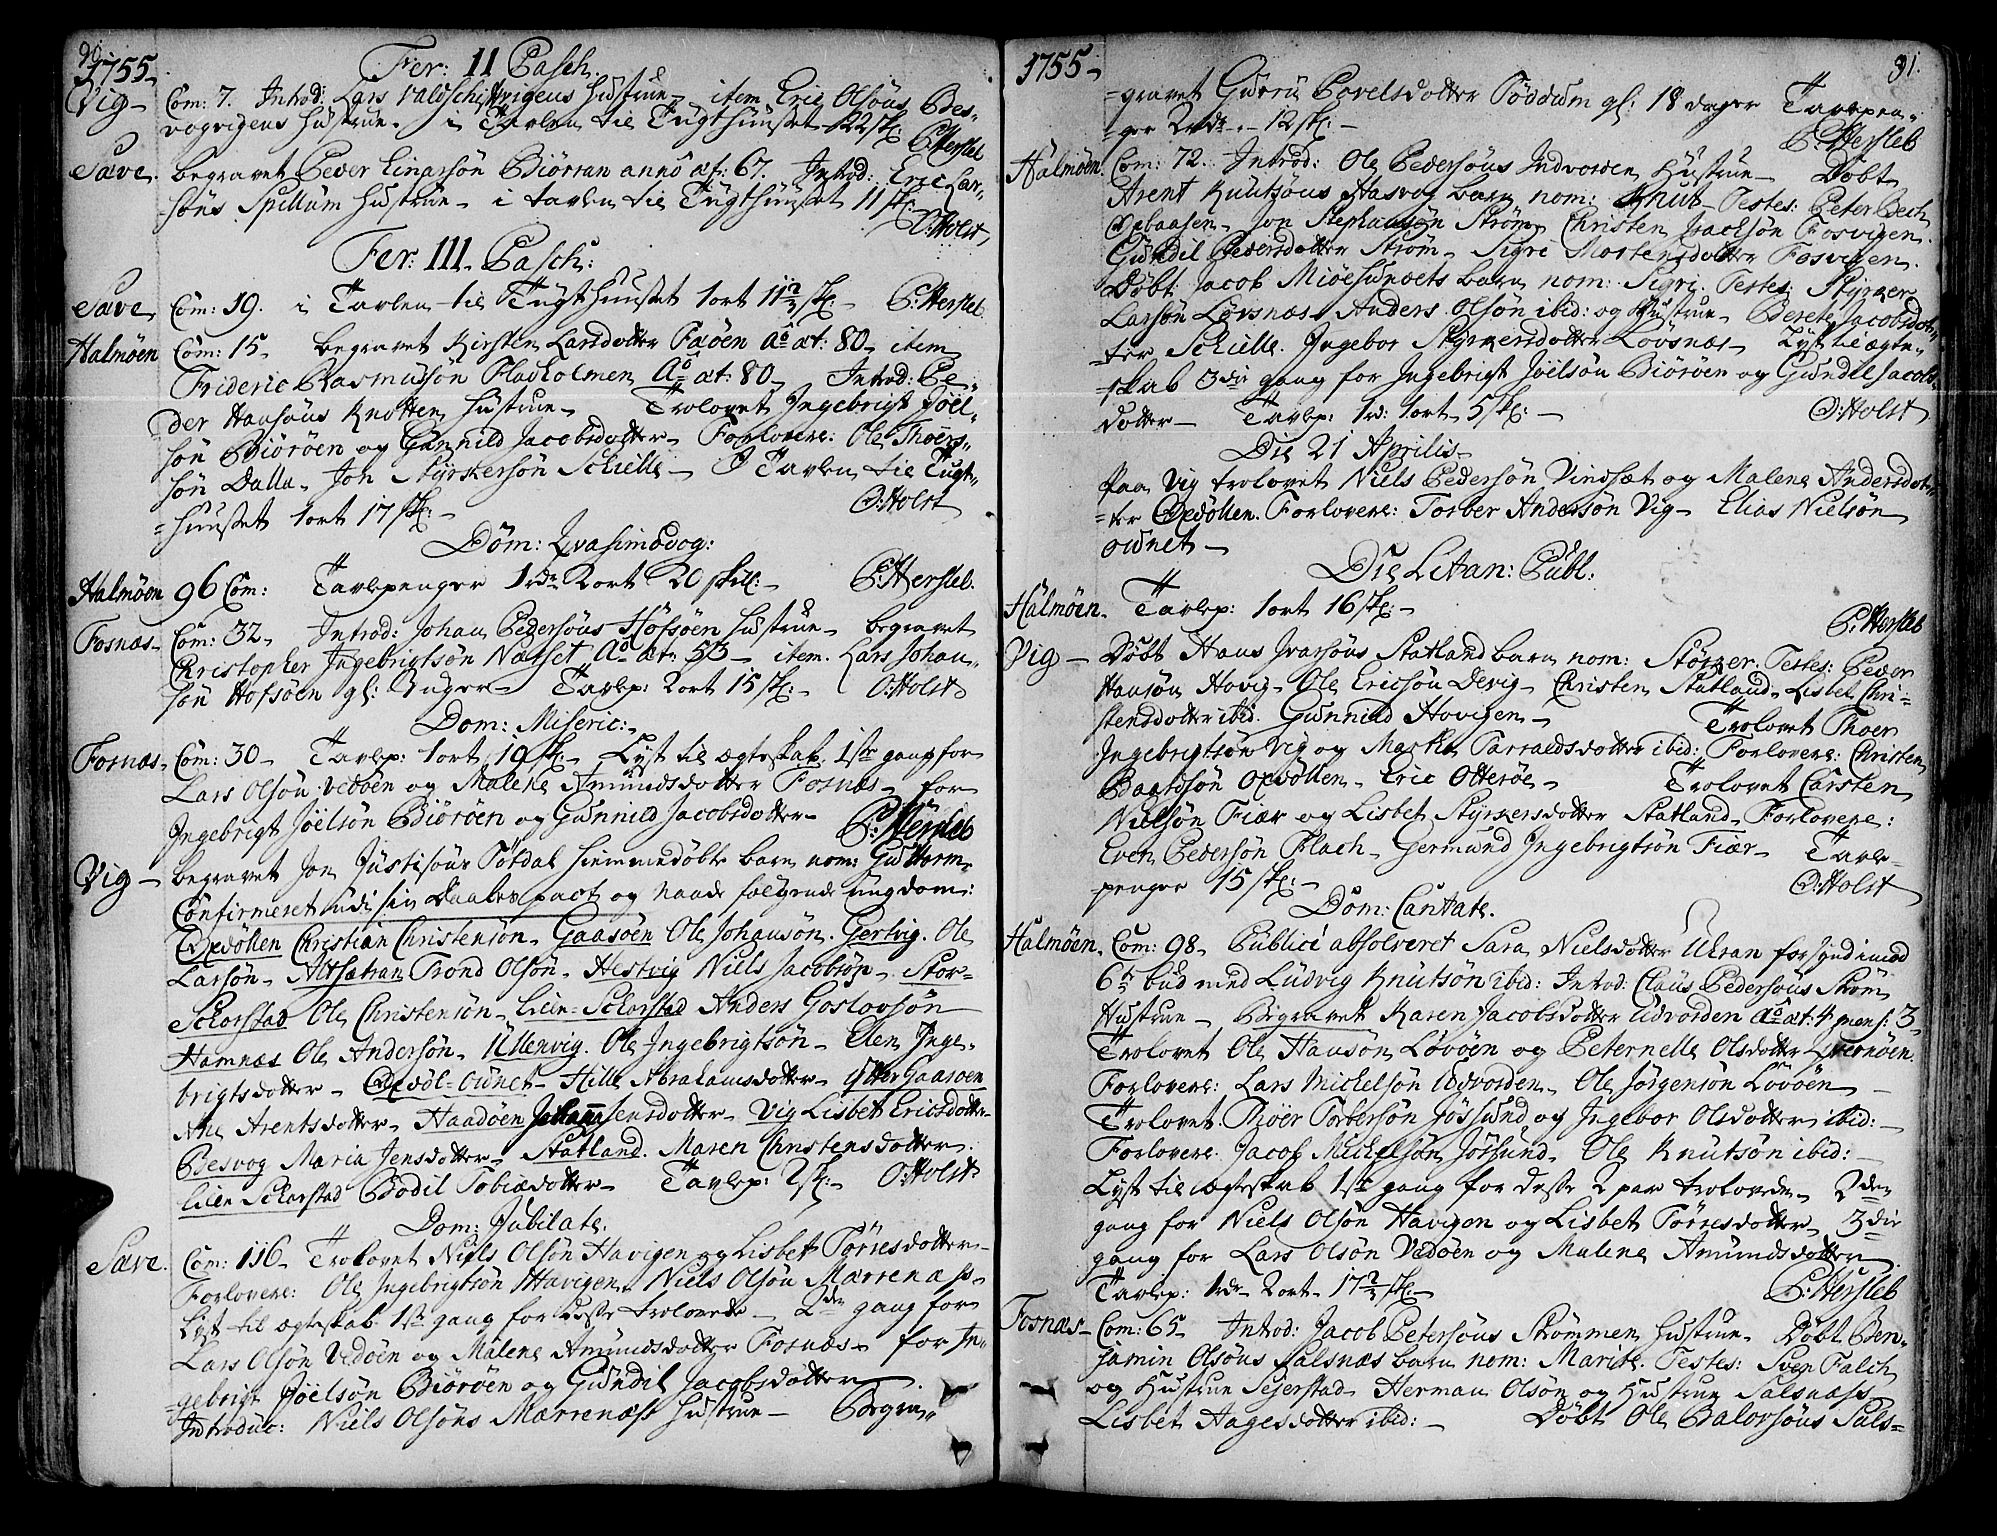 90.
1755
Fer: II Pasch.
Vig Com: 7. Introd: Lars Hustrue item Eric Olsöns Bes-
vogvigens Hustrue. i Tavlen til Tugthuuset 22 sk: P:Hersleb
Sævе. begravet Peder Einarsön Biörran anno æt: 67. Introd: Eric Lar-
söns Spillum Hustrue i tavlen til Tugthuuset 11 sk: O:Holst
Fer: III. Pasch:
Sævе Com: 19. i Tavlen til Tugthuuset 1 ort 11½ sk: P:Hersleb
Halmöen Com: 15 begravet Kirsten Larsdotter Faöen Aō æt: 80 item
Frideric Rasmusön Flakholmen Aō æt: 80 Introd: Pe-
der Hansöns Knotten Hustrue Trolovet Ingebrigt Joel-
sön Biöröen og Gunnild Jacobsdotter Forlovere: Ole Thoers-
sön Dalla Jon Styrkersön Schielle I Tavlen til Tugt-
huuset 1 ort 17 sk: O:Holst
Dom: Qvasimodog:
Halmöen 96 Com: Tavlepenger 1 rdr 2 ort 20 skill: P:Hersleb.
Fosnæs Com: 32 Introd: Johan Pedersöns Hofsöen Hustrue begravet
Christopher Ingebrigtsön Næsset Aō æt: 53 item. Lars Johan-
sön Hofsöen gl: 3 uger Tavlp: 2 ort 15 sk: O:Holst
Dom: Miseric:
Fosnæs Com: 30 Tavlp: 1 ort 10 sk: Lyst til ægteskab 1ste gang for
Lars Olsön Vedöen og Malene Amundsdotter Fosnæs for
Ingebrigt Joelsön Biöröen og Gunnild Jacobsdotter P:Hersleb
Vig begravet Jon Justisöns Sötdal hiemmedöbte barn nom: Gutterm
Confirmeret udi sin Daabes pact og naade fölgende ungdom:
Opdöllen Christian Christensön Gaasöen Ole Johansön. Gertvig. Ole
Larsön Altsætran Trond Olsön Hestvig Niels Jacobsön Stor-
Schorstad Ole Christensön Lille-Schorstad Anders Goslovsön
Hamnæs Ole Andersön Ullenvig. Ole Ingebrigtsön Elen Inge-
brigtsdotter Opdöl-ounet Hille Abrahamsdotter Ytter Gaasoen
Ane Arentsdotter Haadöen Johanna Jensdotter Vig Lisbet Ericsdotter
Besvog Maria Jensdotter Statland. Maren Christensdotter
Lilen Schorstad Bodil Tobiædotter Tavlp: 2 sk: O:Holst
Dom: Jubilate.
Sævе. Com: 116 Trolovet Niels Olsön Havigen og Lisbet Törresdotter
Forlovere: Ole Ingebrigtsön Havigen Niels Olsön Marrenæss
Lyst til ægteskab 1ste gang for desse trolovede 2den gang for
Lars Olsön Vedöen og Malene Amundsdotter Fosnæs for In-
gebrigt Joelsön Biöröen og Gundil Jacobsdotter
Introduc: Niels Olsöns Marrenæss Hustrue Begra-
1755 91.
gravet Guru Povelsdotter Föddum gl: 18 dager Tavlepen-
ger 2 rdr 12 sk: P:Hersleb
Halmöen. Com: 72. Introd: Ole Pedersöns Indvorden Hustrue Döbt
Arent Knutsöns Hasvog barn nom: Knut Testes: Peter Bech
Opbaasen Jon Stephansön Ström Christen Isachsön Fosvigen
Gundil Pedersdotter Ström Sigri Mortensdotter Fosvigen.
Döbt Jacob Mioesundets barn nom: Sigri. Testes: Styrker
Larsön Lövsnæs Anders Olsön ibid: og Hustrue Berete Jacobsdot-
ter Schielle. Ingebor Styrkersdotter Lövsnæs Lyst til ægte-
skab 3die gang for Ingebrigt Joelsön Biöröen og Gundil Jacobs-
dotter Tavlp: 1 rd: 1 ort 5 sk: O:Holst
Die 21 Aprilis
Paa Vig trolovet Niels Pedersön Vindsæt og Malene Andersdot-
ter Opdöllen. Forlovere: Torber Andersön Vig Elias Nielsön
ounet
Die Litan: Publ:
Halmöen. Tavlp: 1 ort 16 sk: P:Hersleb
Vig Döbt Hans Ivarsöns Statland barn nom: Störker. Testes: Peder
Hansön Hovig Ole Ericsön Devig Christen Statland Lisbet Chri-
stensdotter ibid. Gunnild Hovigen Trolovet Thoer
Ingebrigtsön Vig og Marthe Parralsdotter ibid: Forlovere: Christen
Baardsön Opdöllen Eric Otteröe Trolovet Carsten
Nielsön Fiær og Lisbet Styrkersdotter Statland Forlovere:
Even Pedersön Flach Germund Ingebrigtsön Fiær Tavle-
penger 15 sk: O:Holst
Dom: Cantate.
Halmöen. Com: 98 Publicè absolveret Sara Nielsdotter Utran for synd imod
6te bud med Ludvig Knutsön ibid: Introd: Claus Pedersöns Ström
Hustrue Begravet Karen Jacobsdotter Udvorden Aō æt: 4 mens: 3
Trolovet Ole Hansön Lövöen og Peternelle Olsdotter Qvernöen
Forlovere: Lars Michelsön Udvorden Ole Jörgensön Lövöen
Trolovet Thoer Torbersön Jössund og Ingebor Olsdotter ibid:
Forlovere Jacob Michelsön Jössund Ole Knutsön ibid:
Lyst til ægteskab 1ste gang for desse 2 par trolovede 2den
gang for Niels Olsön Havigen og Lisbet Törresdotter 3die
gang for Lars Olsön Vedöen og Malene Amundsdotter
Tavlp: 1 rdr 2 ort 17½ sk: P:Hersleb
Fosnæs Com: 65 Introd: Jacob Petersöns Strömmen Hustrue Döbt Ben-
jamin Olsöns Salsnæs barn nom: Marite. Testes: Sven Falch
og Hustrue Seierstad Herman Olsön og Hustrue Salsnæss
Lisbet Hagesdotter ibid: Döbt Ole Balorsöns Sals-